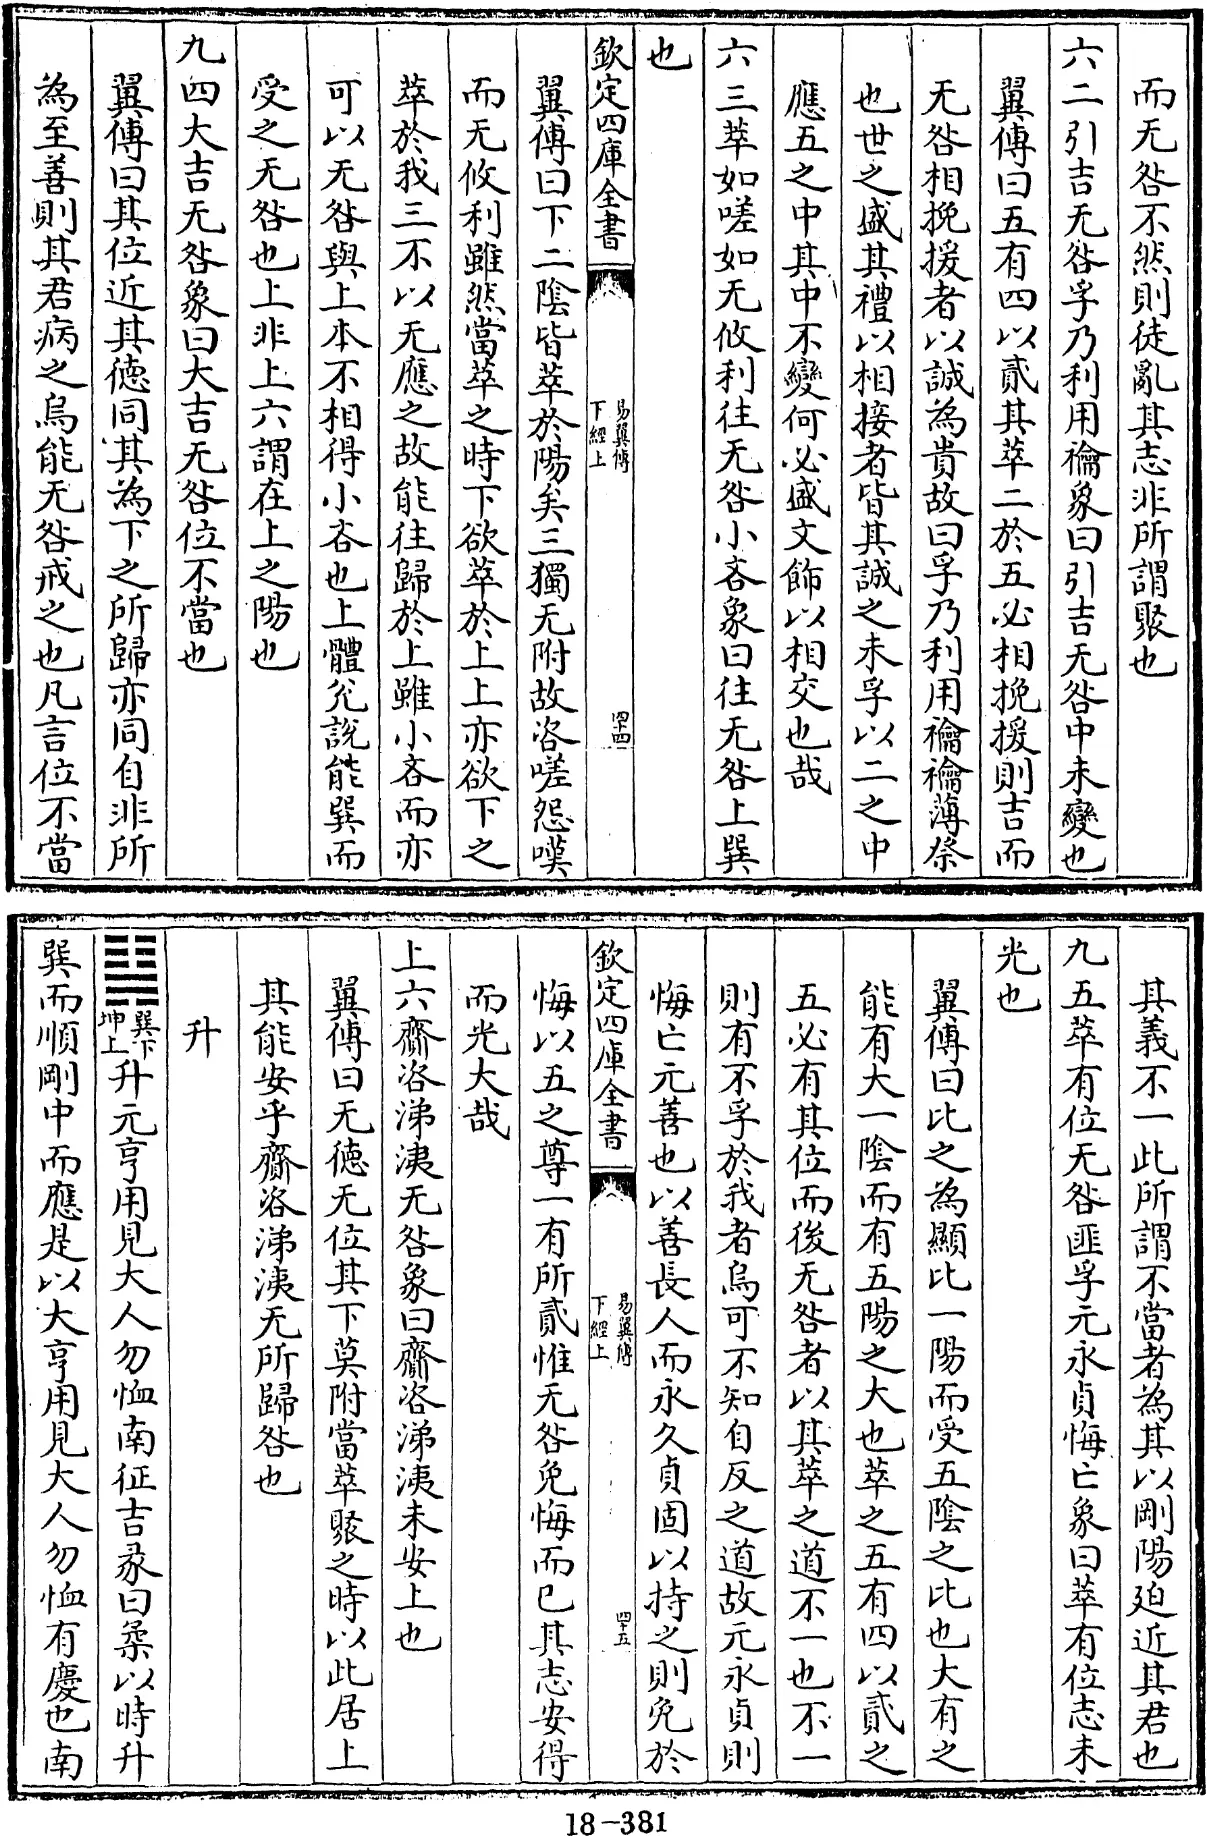 而无咎不然則徒亂其志非所謂聚也
六二引吉无咎孚乃利用禴象曰引吉无咎中未變也
翼傳曰五有四以貳其萃二於五必相挽援則吉而
无咎相挽援者以誠為貴故曰孚乃利用禴禴薄祭
也世之盛其禮以相接者皆其誠之未孚以二之中
應五之中其中不變何必盛文飾以相交也哉
六三萃如嗟如无攸利往无咎小吝象曰往无咎上巽
也
欽定四庫全書
易翼傳
下經上
四十四
翼傳曰下二陰皆萃於陽矣三獨无附故咨嗟怨嘆
而无攸利雖然當萃之時下欲萃於上上亦欲下之
萃於我三不以无應之故能往歸於上雖小吝而亦
可以无咎與上本不相得小吝也上體兊說能巽而
受之无咎也上非上六謂在上之陽也
九四大吉无咎象曰大吉无咎位不當也
翼傳曰其位近其德同其為下之所歸亦同自非所
為至善則其君病之烏能无咎戒之也凡言位不當
其義不一此所謂不當者為其以剛陽廹近其君也
九五萃有位无咎匪孚元永貞悔亡象曰萃有位志未
光也
翼傳曰比之為顯比一陽而受五陰之比也大有之
能有大一陰而有五陽之大也萃之五有四以貳之
五必有其位而後无咎者以其萃之道不一也不一
則有不孚於我者烏可不知自反之道故元永貞則
悔亡元善也以善長人而永久貞固以持之則免於
欽定四庫全書
易翼傳
下經上
四十五
悔以五之尊一有所貳惟无咎免悔而已其志安得
而光大哉
上六齎咨涕洟无咎象曰齎咨涕洟未安上也
翼傳曰无德无位其下莫附當萃聚之時以此居上
其能安乎齎咨涕洟无所歸咎也
升
巽下
坤上
升元亨用見大人勿恤南征吉彖曰柔以時升
巽而順剛中而應是以大亨用見大人勿恤有慶也南
18-381